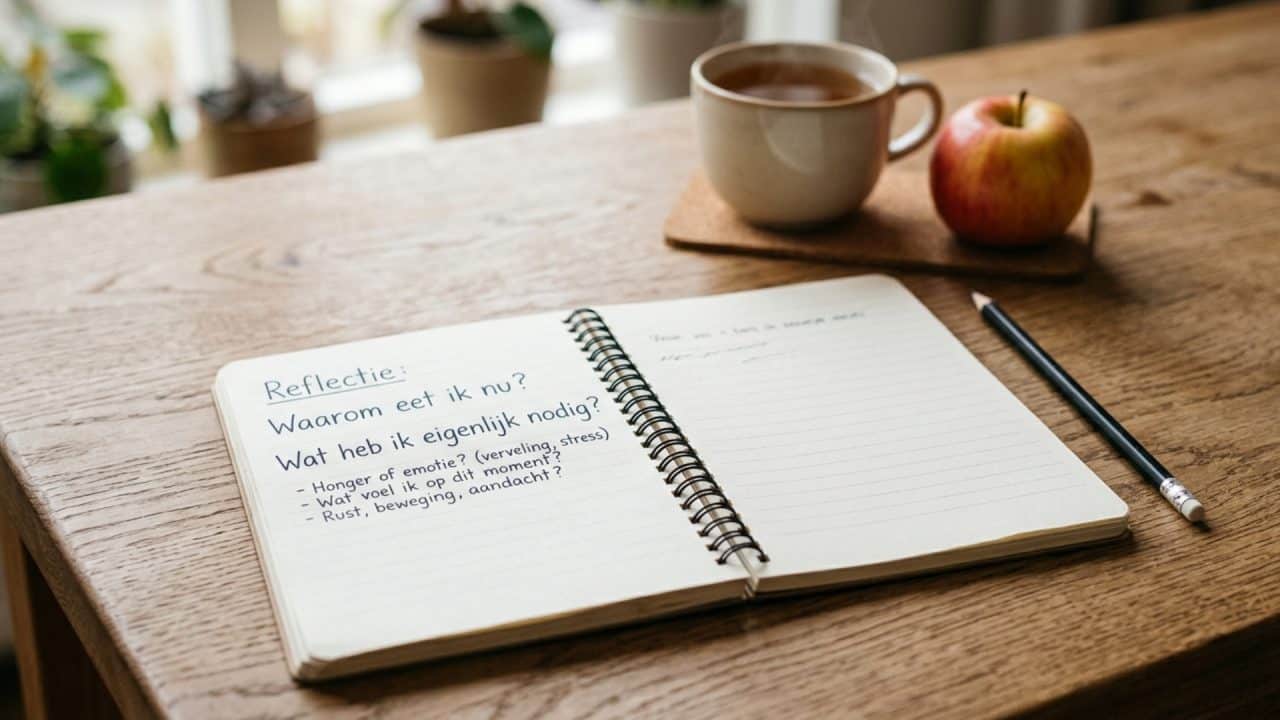 Reflectie:
Waarom eet ik nu?
Wat heb ik eigenlijk nodig?
- Honger of emotie? (verveling, stress)
- Wat voel ik op dit moment?
- Rust, beweging, aandacht?